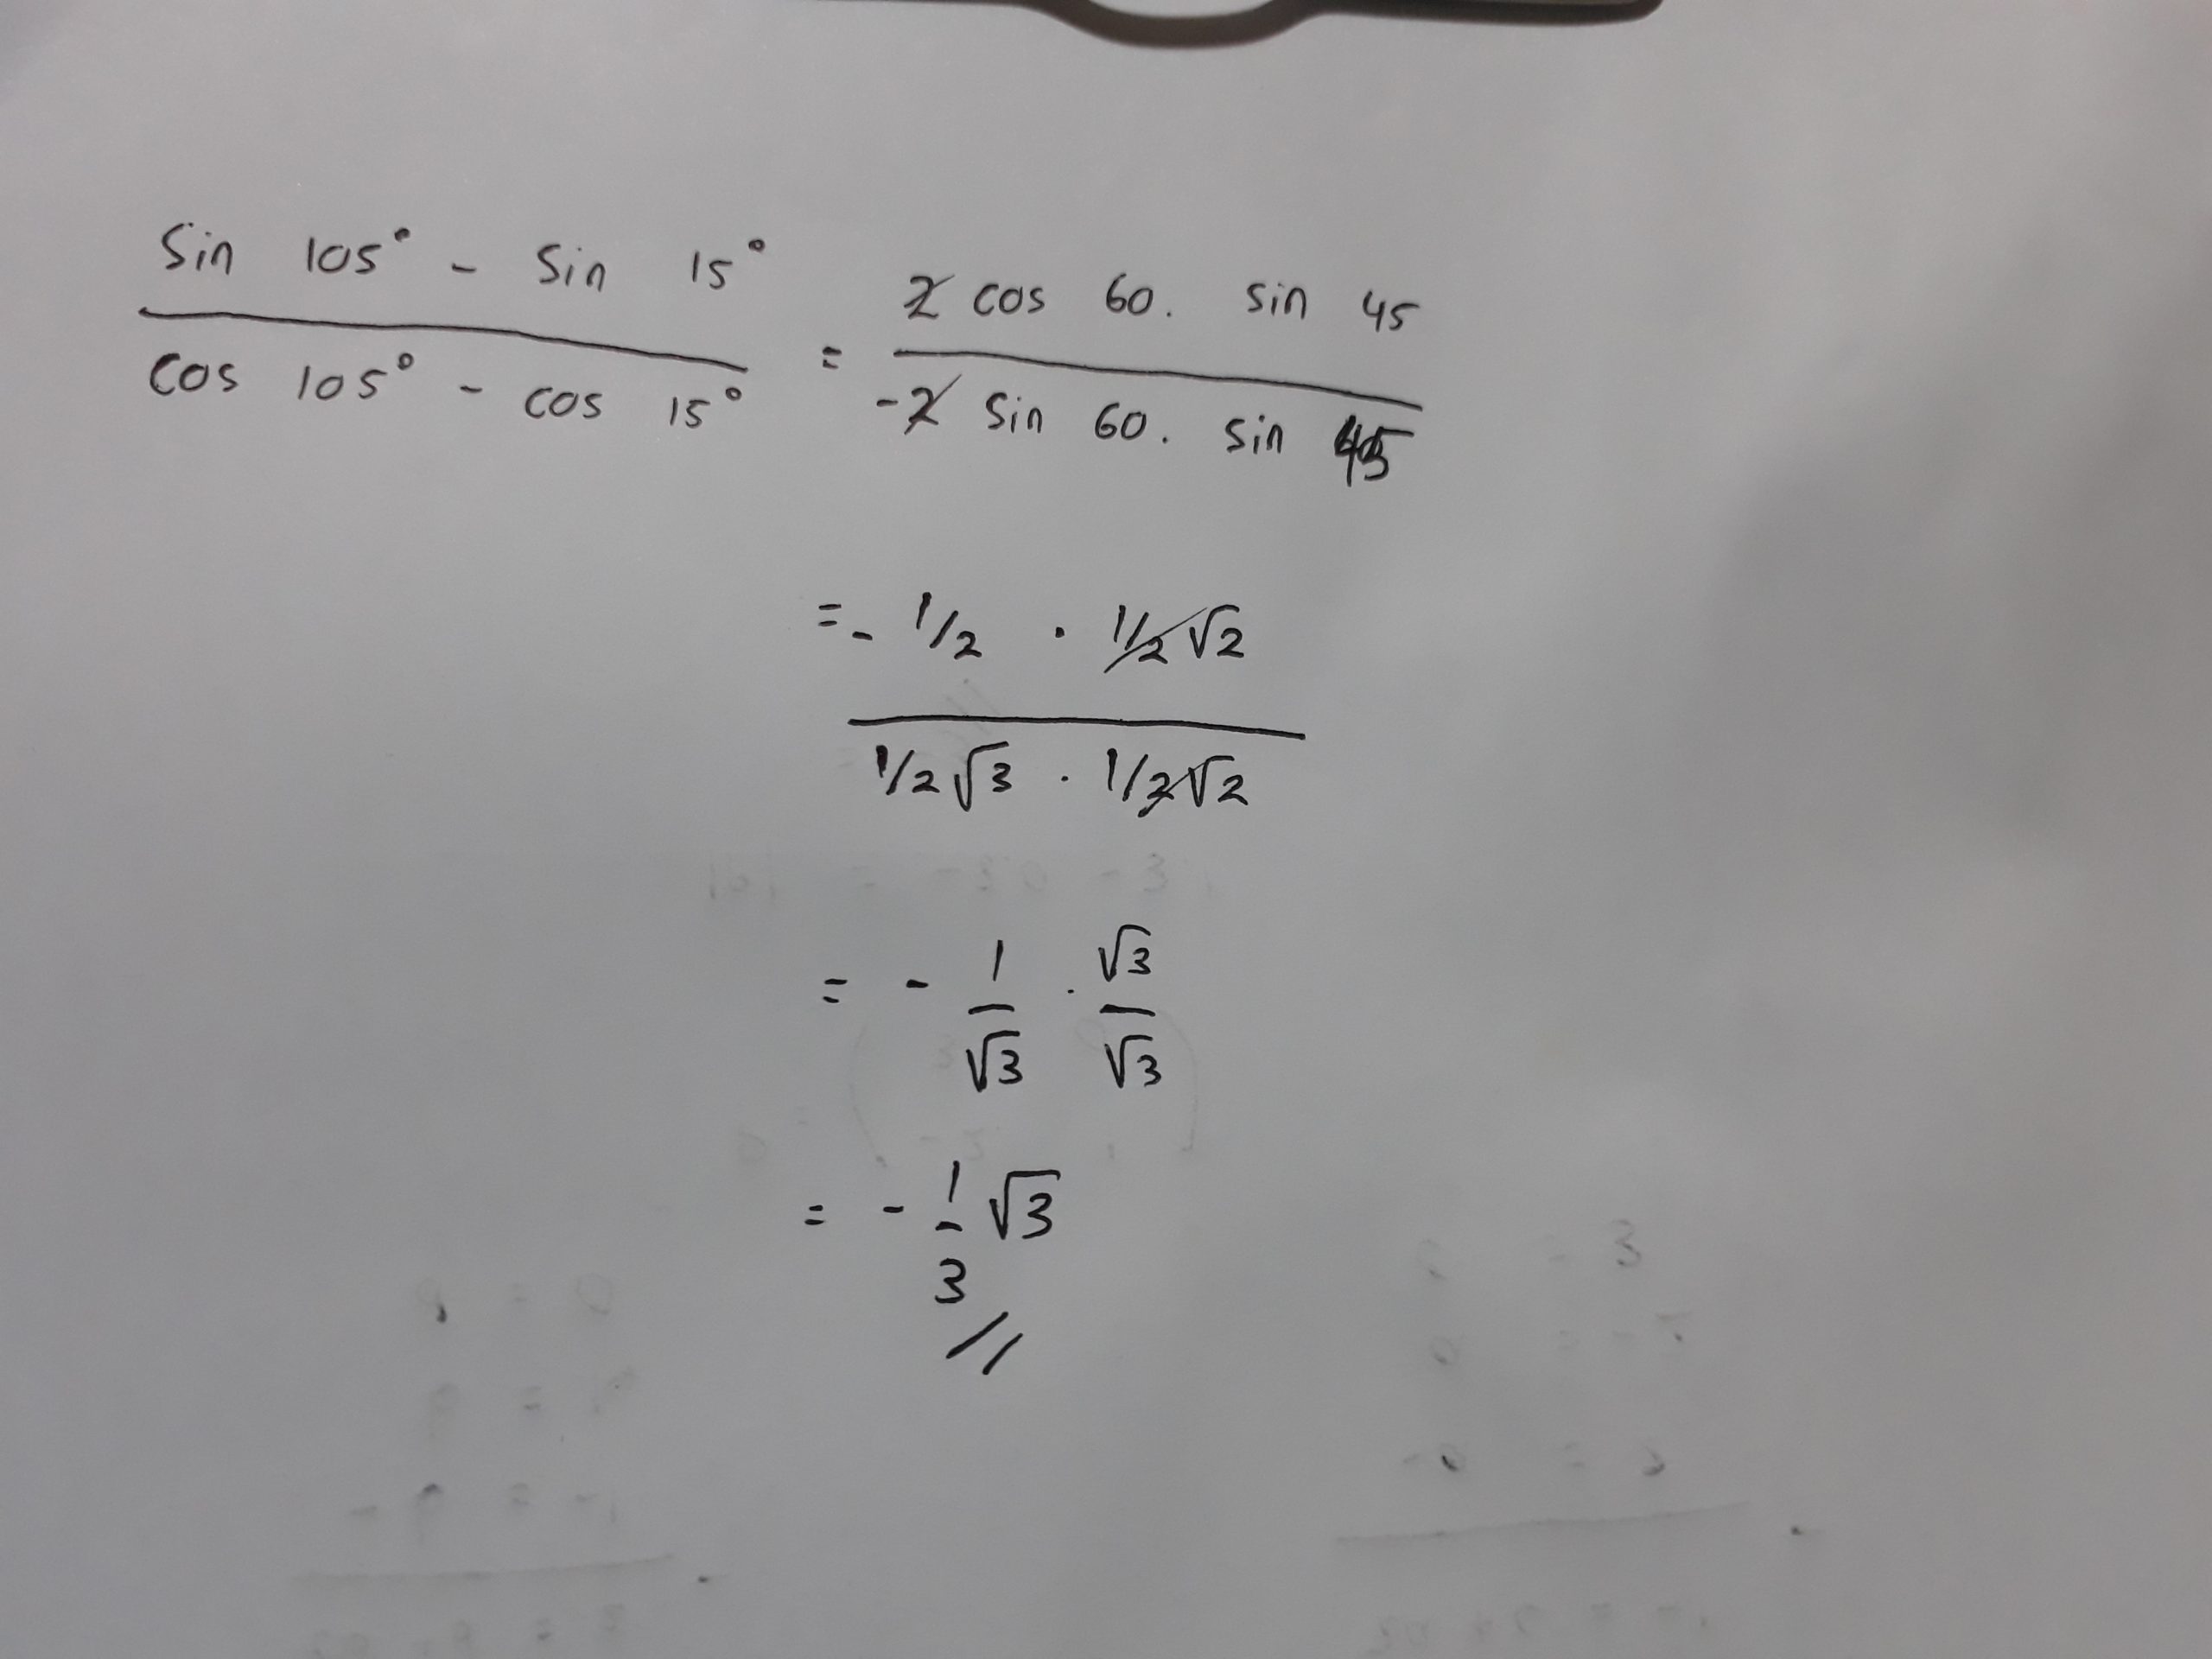 Sin 105° - Sin 15°
cos 105° - cos 15°
= 2 cos 60. sin 45
-2 sin 60. sin 45
= - 1/2 . 1/2 √2
1/2 √3 . 1/2 √2
= - 1 . √3
√3 √3
= - 1 √3
3